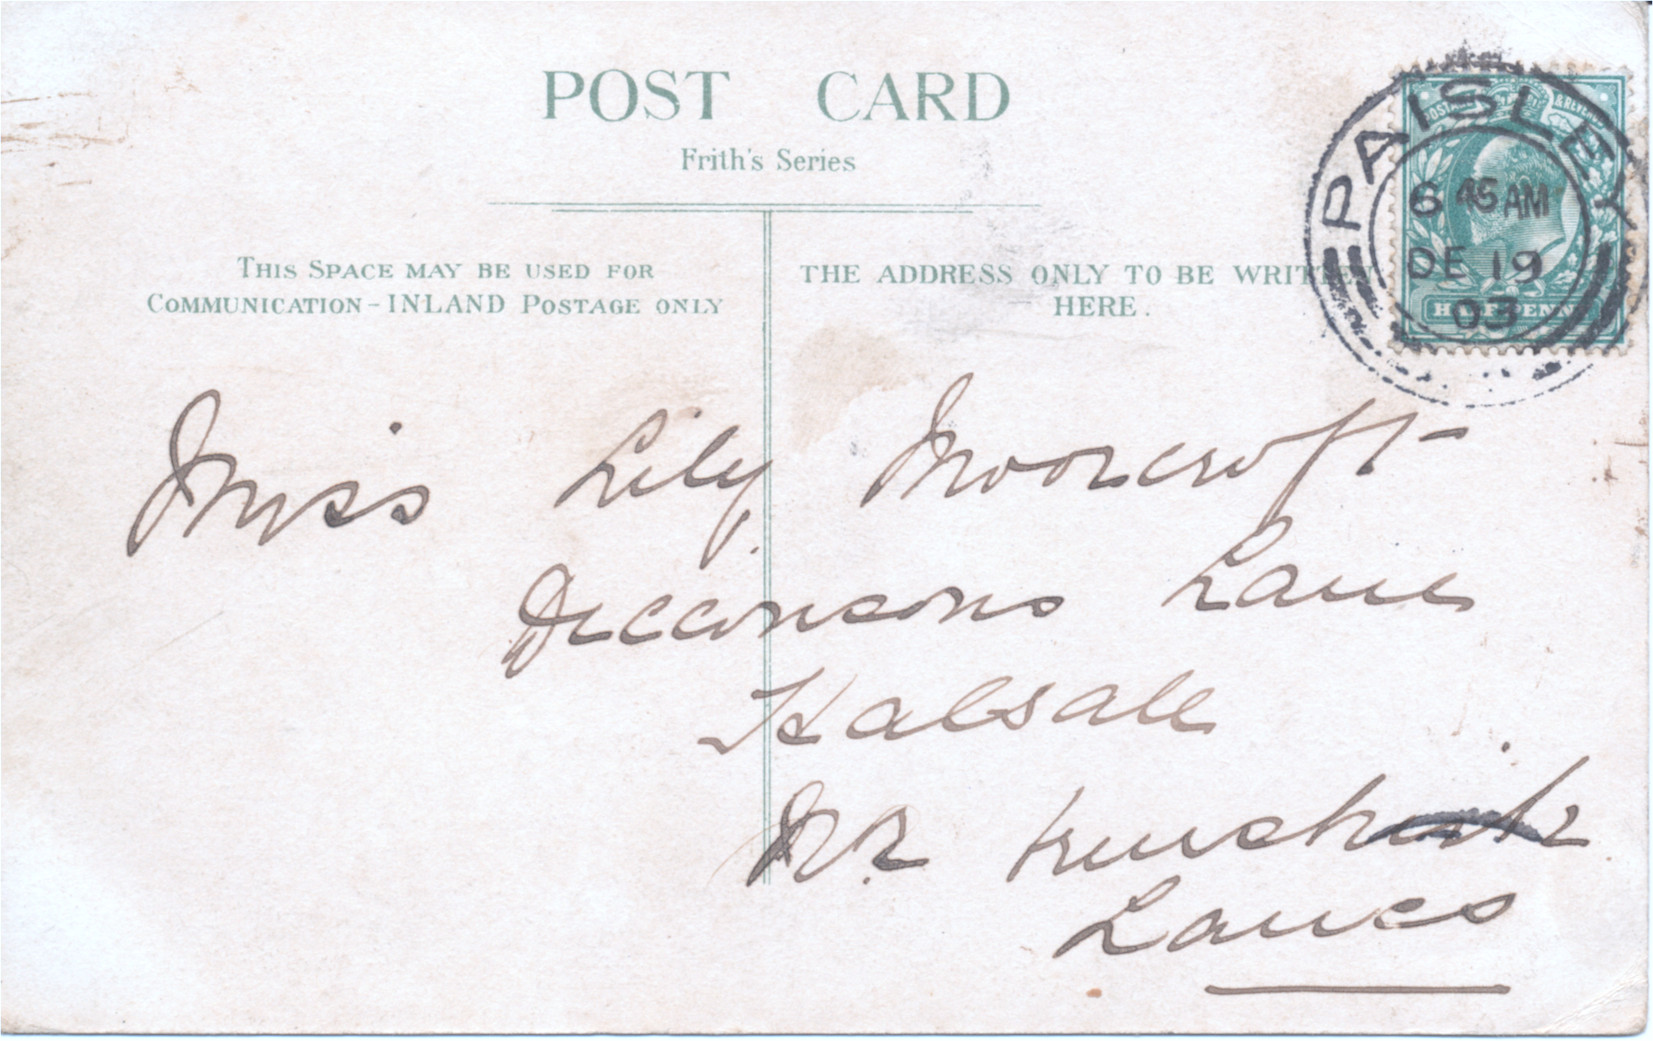 POST CARD
Frith's Series
THIS SPACE MAY BE USED FOR
COMMUNICATION - INLAND POSTAGE ONLY
THE ADDRESS ONLY TO BE WRITTEN
HERE.
PAISLEY
6 45 AM
DE 19
03
HALFPENNY
Miss Lily Moorcroft
Dicconsons Lane
Halsall
Nr
Lancs